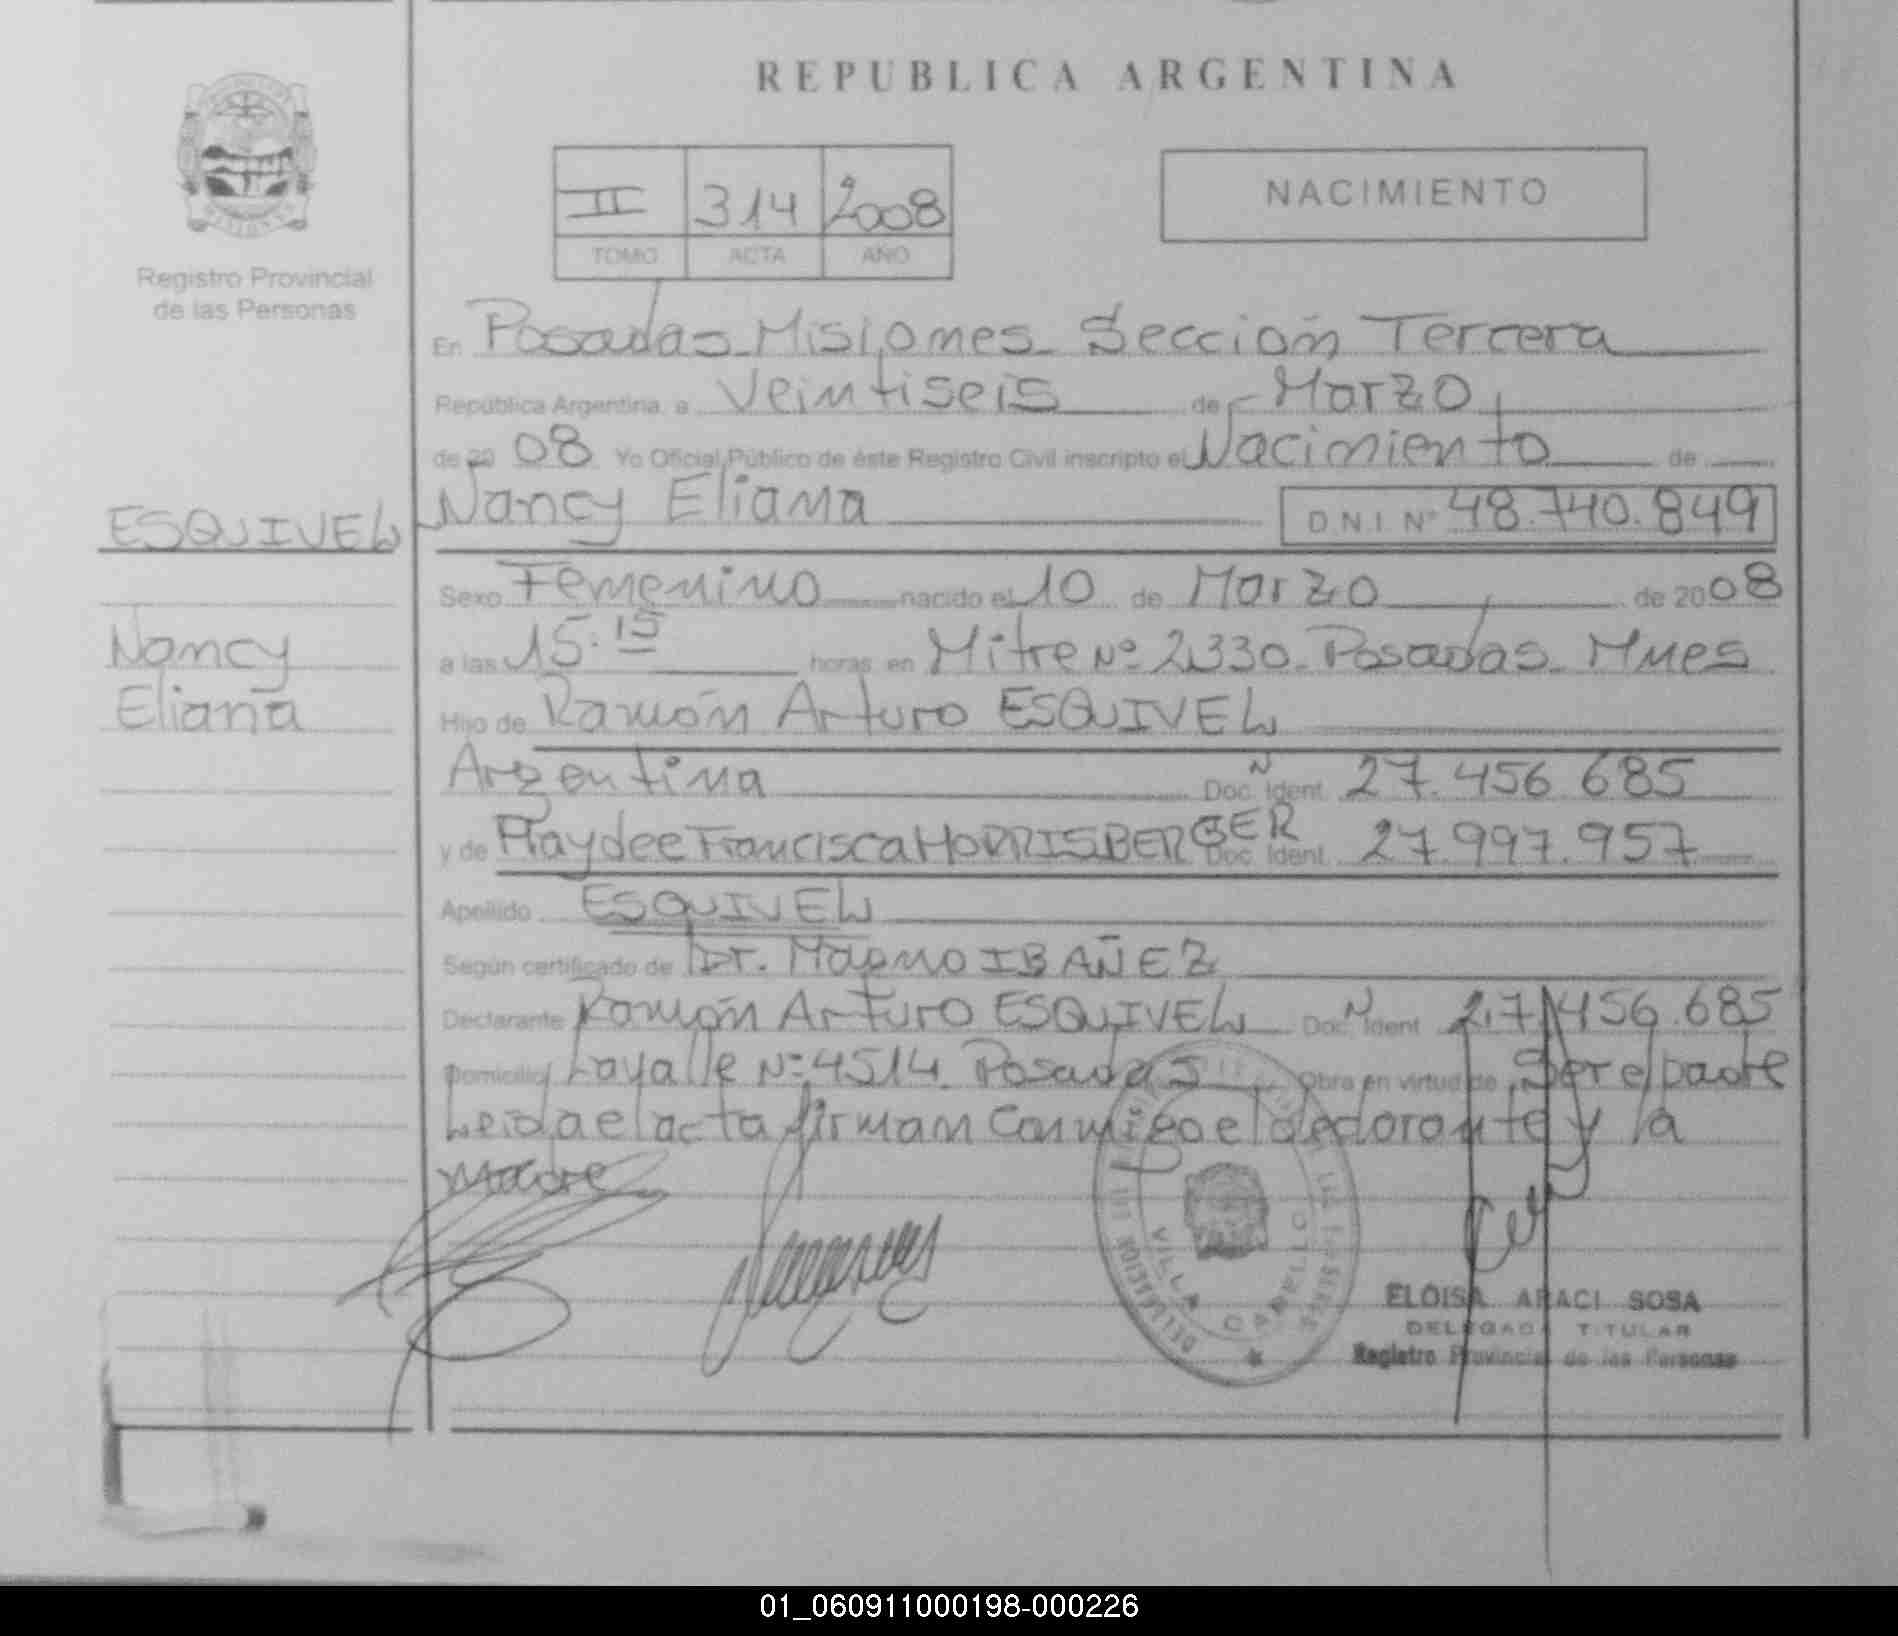 REPUBLICA ARGENTINA
II 314 2008
TOMO ACTA AÑO
NACIMIENTO
Registro Provincial
de las Personas
En Posadas Misiones Sección Tercera
República Argentina, a Veintiseis de Marzo
de 20 08 Yo Oficial Público de éste Registro Civil inscripto el Nacimiento de
ESQUIVEL
Nancy
Eliana
Nancy Eliana D N I Nº 48.740.849
Sexo Femenino nacido el 10 de Marzo de 2008
a las 15:15 horas en Mitre Nº 2330 Posadas Mnes
Hijo de Ramón Arturo ESQUIVEL
Argentina Doc. Ident. 27.456.685
y de Haydee Francisca HORRISBERGER Doc. Ident. 27.997.957
Apellido ESQUIVEL
Según certificado de Dr. Magno IBAÑEZ
Declarante Ramón Arturo ESQUIVEL Doc. Ident. 27.456.685
Domicilio Lavalle Nº 4514 Posadas Obra en virtud de Ser el padre
Leida el acta firman conmigo el declarante y la
madre
VILLA CABELLO
ELOISA ARACI SOSA
DELEGADA TITULAR
Registro Provincial de las Personas
01_060911000198-000226